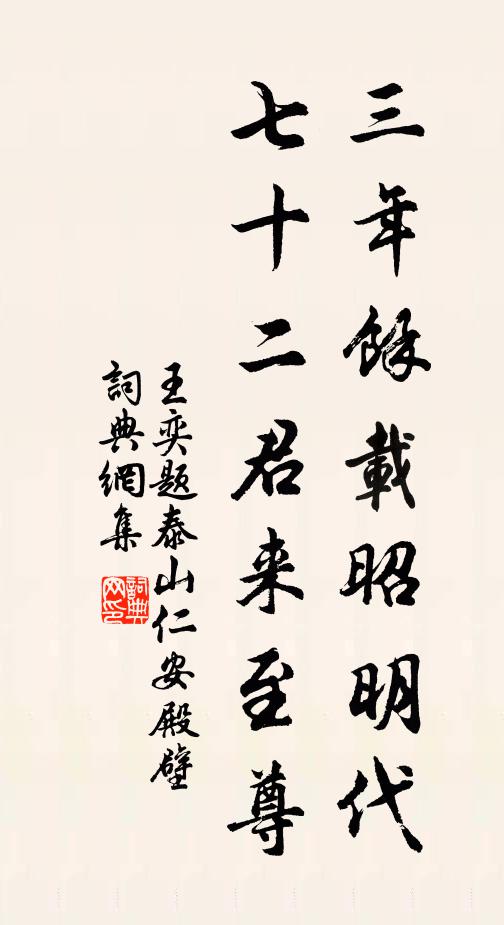 三年餘載昭明代
七十二君来至尊
王奕题泰山仁安殿壁
詞典網集
詞典
网印